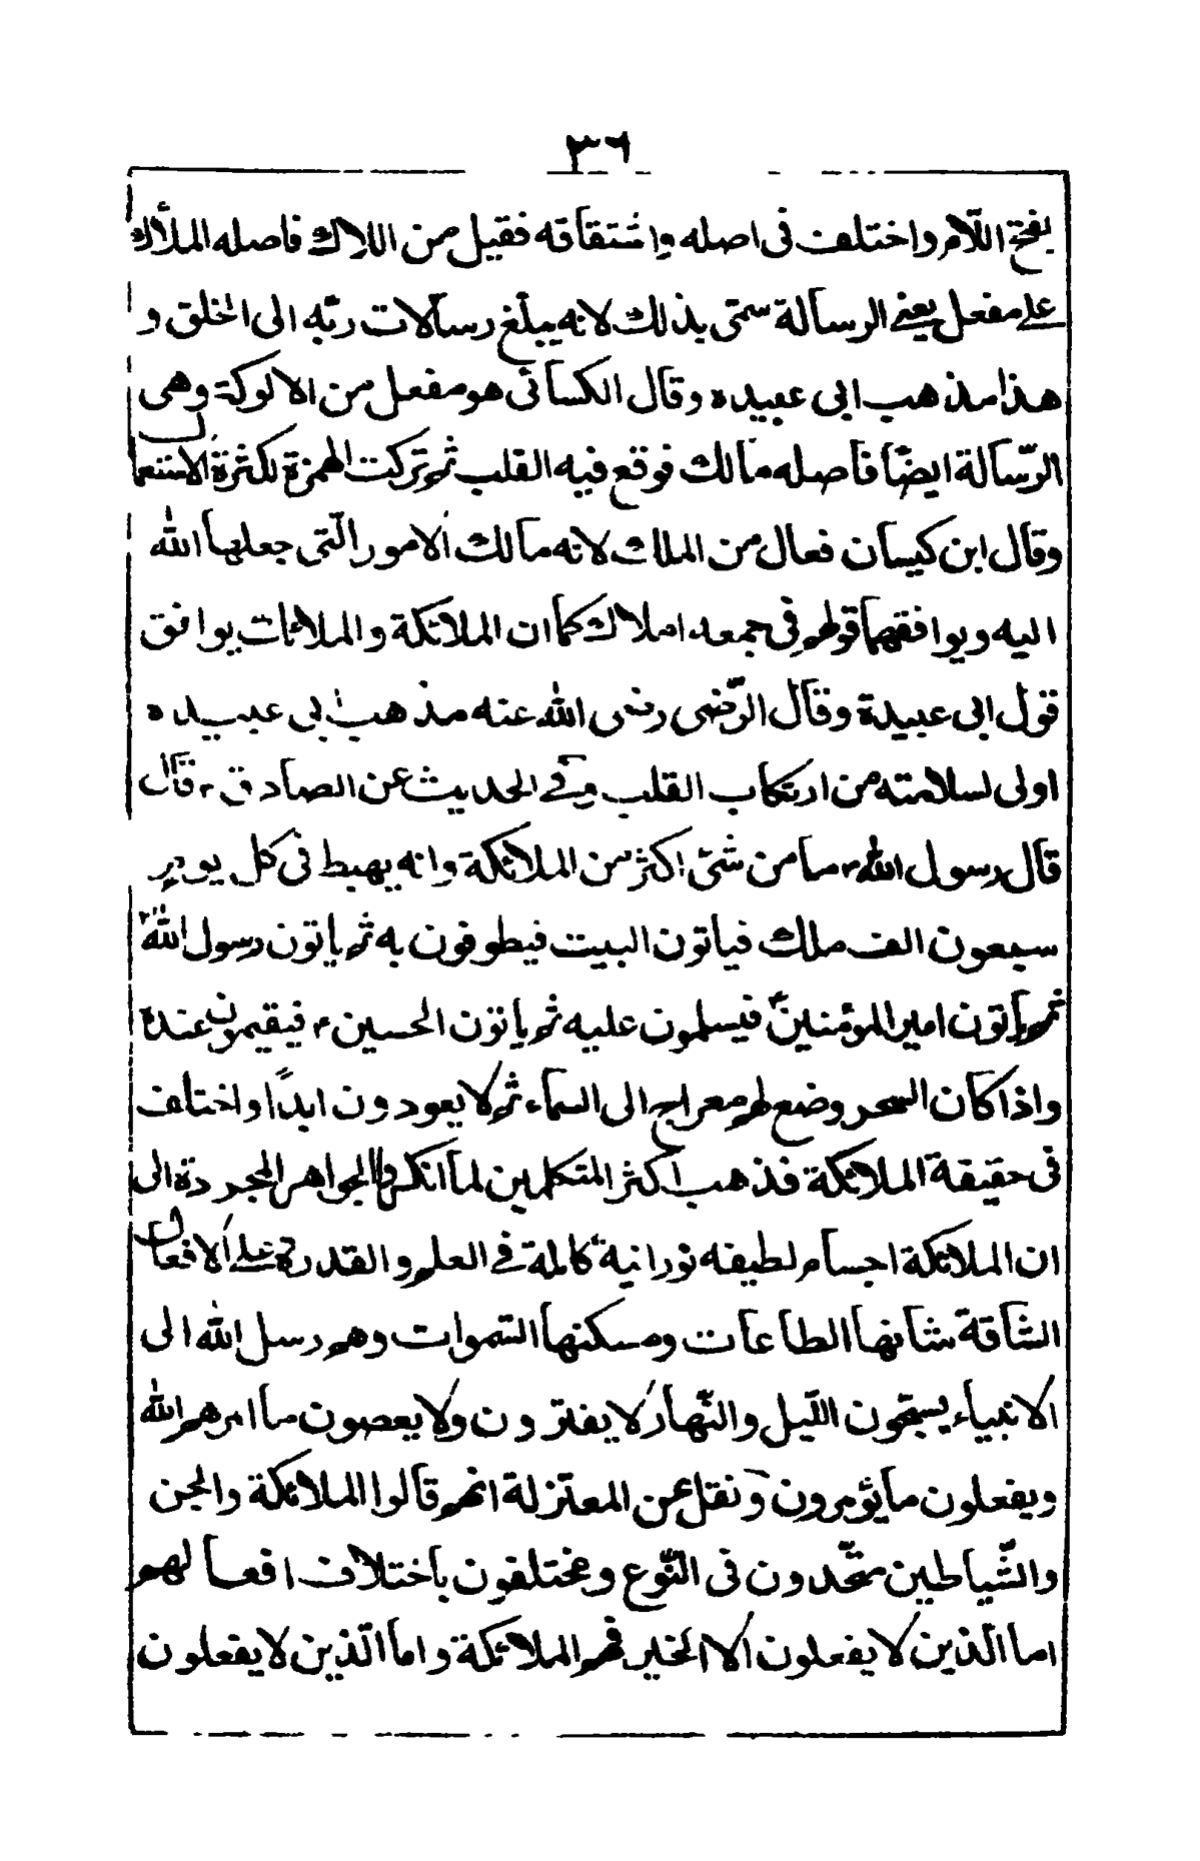 ٣٦
بفتح اللّام واختلف فى اصله واشتقاقه فقيل من اللاك فاصله الملأك
على مفعل يعنى الرسالة سمّى بذلك لانه يبلغ رسالات ربّه الى الخلق و
هذا مذهب ابى عبيده وقال الكسائى هو مفعل من الالوكة وهى
الرّسالة ايضًا فاصله مالك فوقع فيه القلب ثم تركت الهمزة لكثرة الاستعمال
وقال ابن كيسان فعال من الملك لانه مالك الامور الّتى جعلها الله
اليه ويوافقهما قولهم فى جمعه املاك كما ان الملائكة والملائات يوافق
قول ابى عبيدة وقال الرّضى رضى الله عنه مذهب ابى عبيده
اولى لسلامته من ارتكاب القلب وفى الحديث عن الصادق ٤ قال
قال رسول الله ما من شئ اكثر من الملائكة وانه يهبط فى كل يوم
سبعون الف ملك فياتون البيت فيطوفون به ثم ياتون رسول الله
ثم ياتون امير المؤمنين فيسلمون عليه ثم ياتون الحسين ٤ فيقيمون عنده
واذا كان السحر وضع لهم معراج الى السماء ثم لا يعودون ابدًا واختلف
فى حقيقة الملائكة فذهب اكثر المتكلمين لما انكروا الجواهر المجردة الى
ان الملائكة اجسام لطيفه نورانية كاملة فى العلم والقدرة على الافعال
الشّاقة شانها الطاعات ومسكنها السّموات وهم رسل الله الى
الانبياء يسبّحون اللّيل والنّهار لا يفترون ولا يعصون ما امرهم الله
ويفعلون ما يؤمرون ونقل عن المعتزلة انهم قالوا الملائكة والجن
والشّياطين متّحدون فى النّوع ومختلفون باختلاف افعالهم
اما الّذين لا يفعلون الا الخير فهم الملائكة واما الّذين لا يفعلون